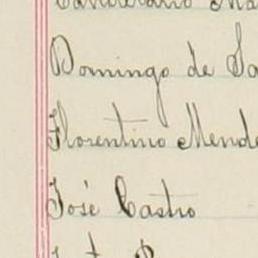 Domingo de
Florentino Mende
José Castro